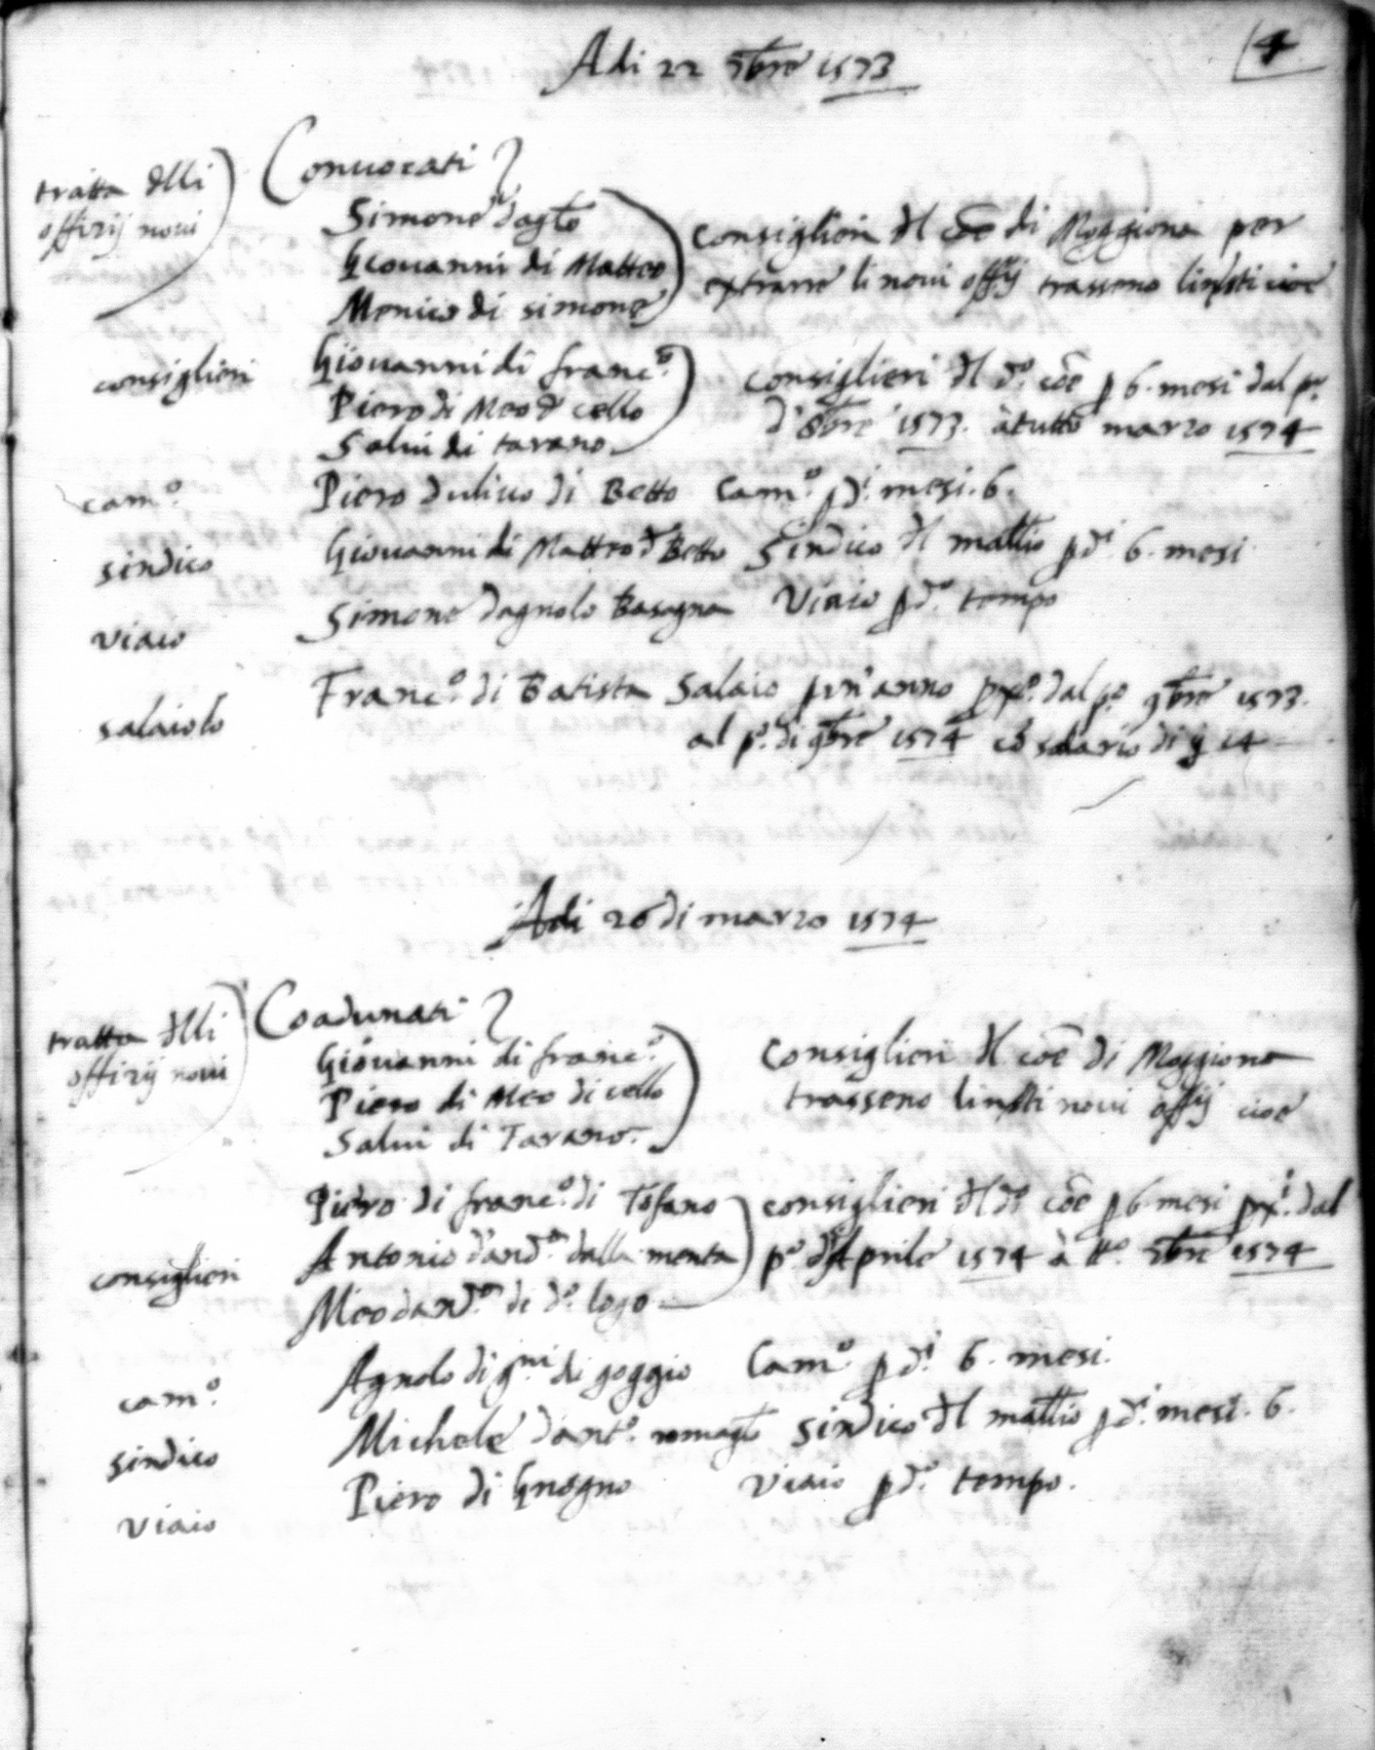 4
Adi 22 7bre 1573
tratta dlli
offitij novi
Convocati
Simone dagto
Giovanni di Matteo
Menico di simone
consiglieri dl coe di Moggiona per
extrarre li novi offij trasseno linfrti cioe
consiglieri
Giovanni di franc.o
Piero di Meo d cello
Salvi di tarano
consiglieri dl d.o coe p 6. mesi dal p.o
d'8bre 1573. à tutto marzo 1574
cam.o
Piero dulivo di Betto Cam.o p d.i mesi. 6.
sindico
Giovanni di Matteo d Betto Sindico dl mallio p d.i 6. mesi
viaio
Simone dagnolo Basagna Viaio p d.o tempo
salaiolo
Franc.o di Batista Salaio p un'anno px.o dal p.o 9bre 1573.
al p.o di 9bre 1574 co salario di 14
Adi 26 di marzo 1574
tratta dlli
offitij novi
Coadunati
Giovanni di franc.o
Piero di Meo di cello
Salvi di Tarano.
Consiglieri dl coe di Moggiona
trasseno linfrti novi offij cioe
consiglieri
Piero di franc.o di Tofano
Antonio d'and.a dalla menta
Meo dand.a de d.o logo
consiglieri dl d.o coe p 6. mesi px.i dal
p.o d'Aprile 1574 à tt.o 7bre 1574
cam.o
Agnolo di g.ni di goggio Cam.o p d.i 6. mesi.
sindico
Michele dant.o sindico dl mallio p d.i mesi. 6.
viaio
Piero di Gnogno viaio p d.o tempo.